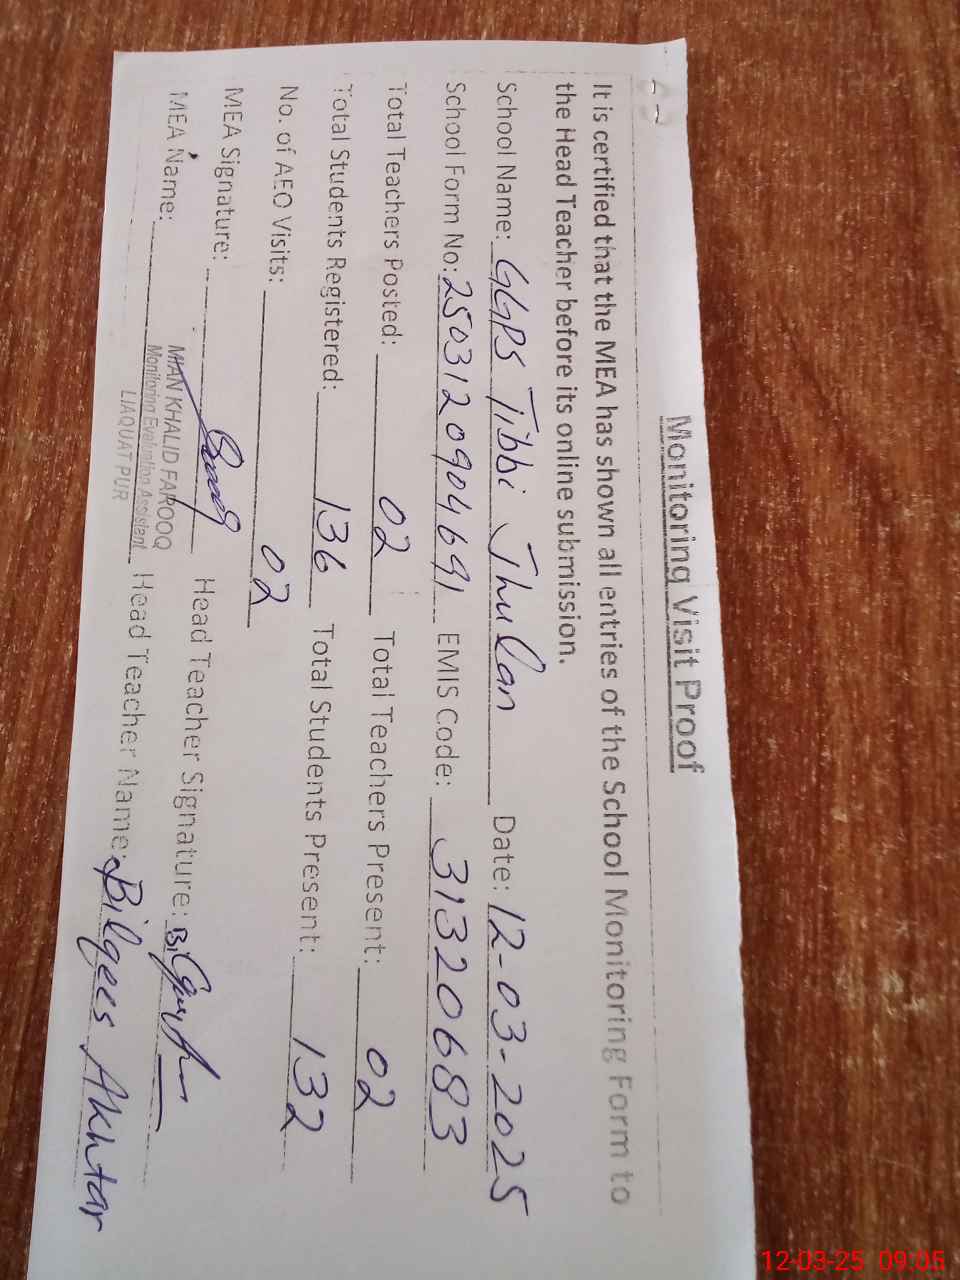 Monitoring Visit Proof
It is certified that the MEA has shown all entries of the School Monitoring Form to
the Head Teacher before its online submission.
School Name: GGPS Tibbi Jhulan Date: 12-03-2025
School Form No: 2503120904691 EMIS Code: 31320683
Total Teachers Posted: 02 Total Teachers Present: 02
Total Students Registered: 136 Total Students Present: 132
No. of AEO Visits: 02
MEA Signature: Head Teacher Signature:
MEA Name: MIAN KHALID FAROOQ Head Teacher Name: Bilqees Akhtar
Monitoring Evaluation Assistant
LIAQUAT PUR
12-03-25 09:05